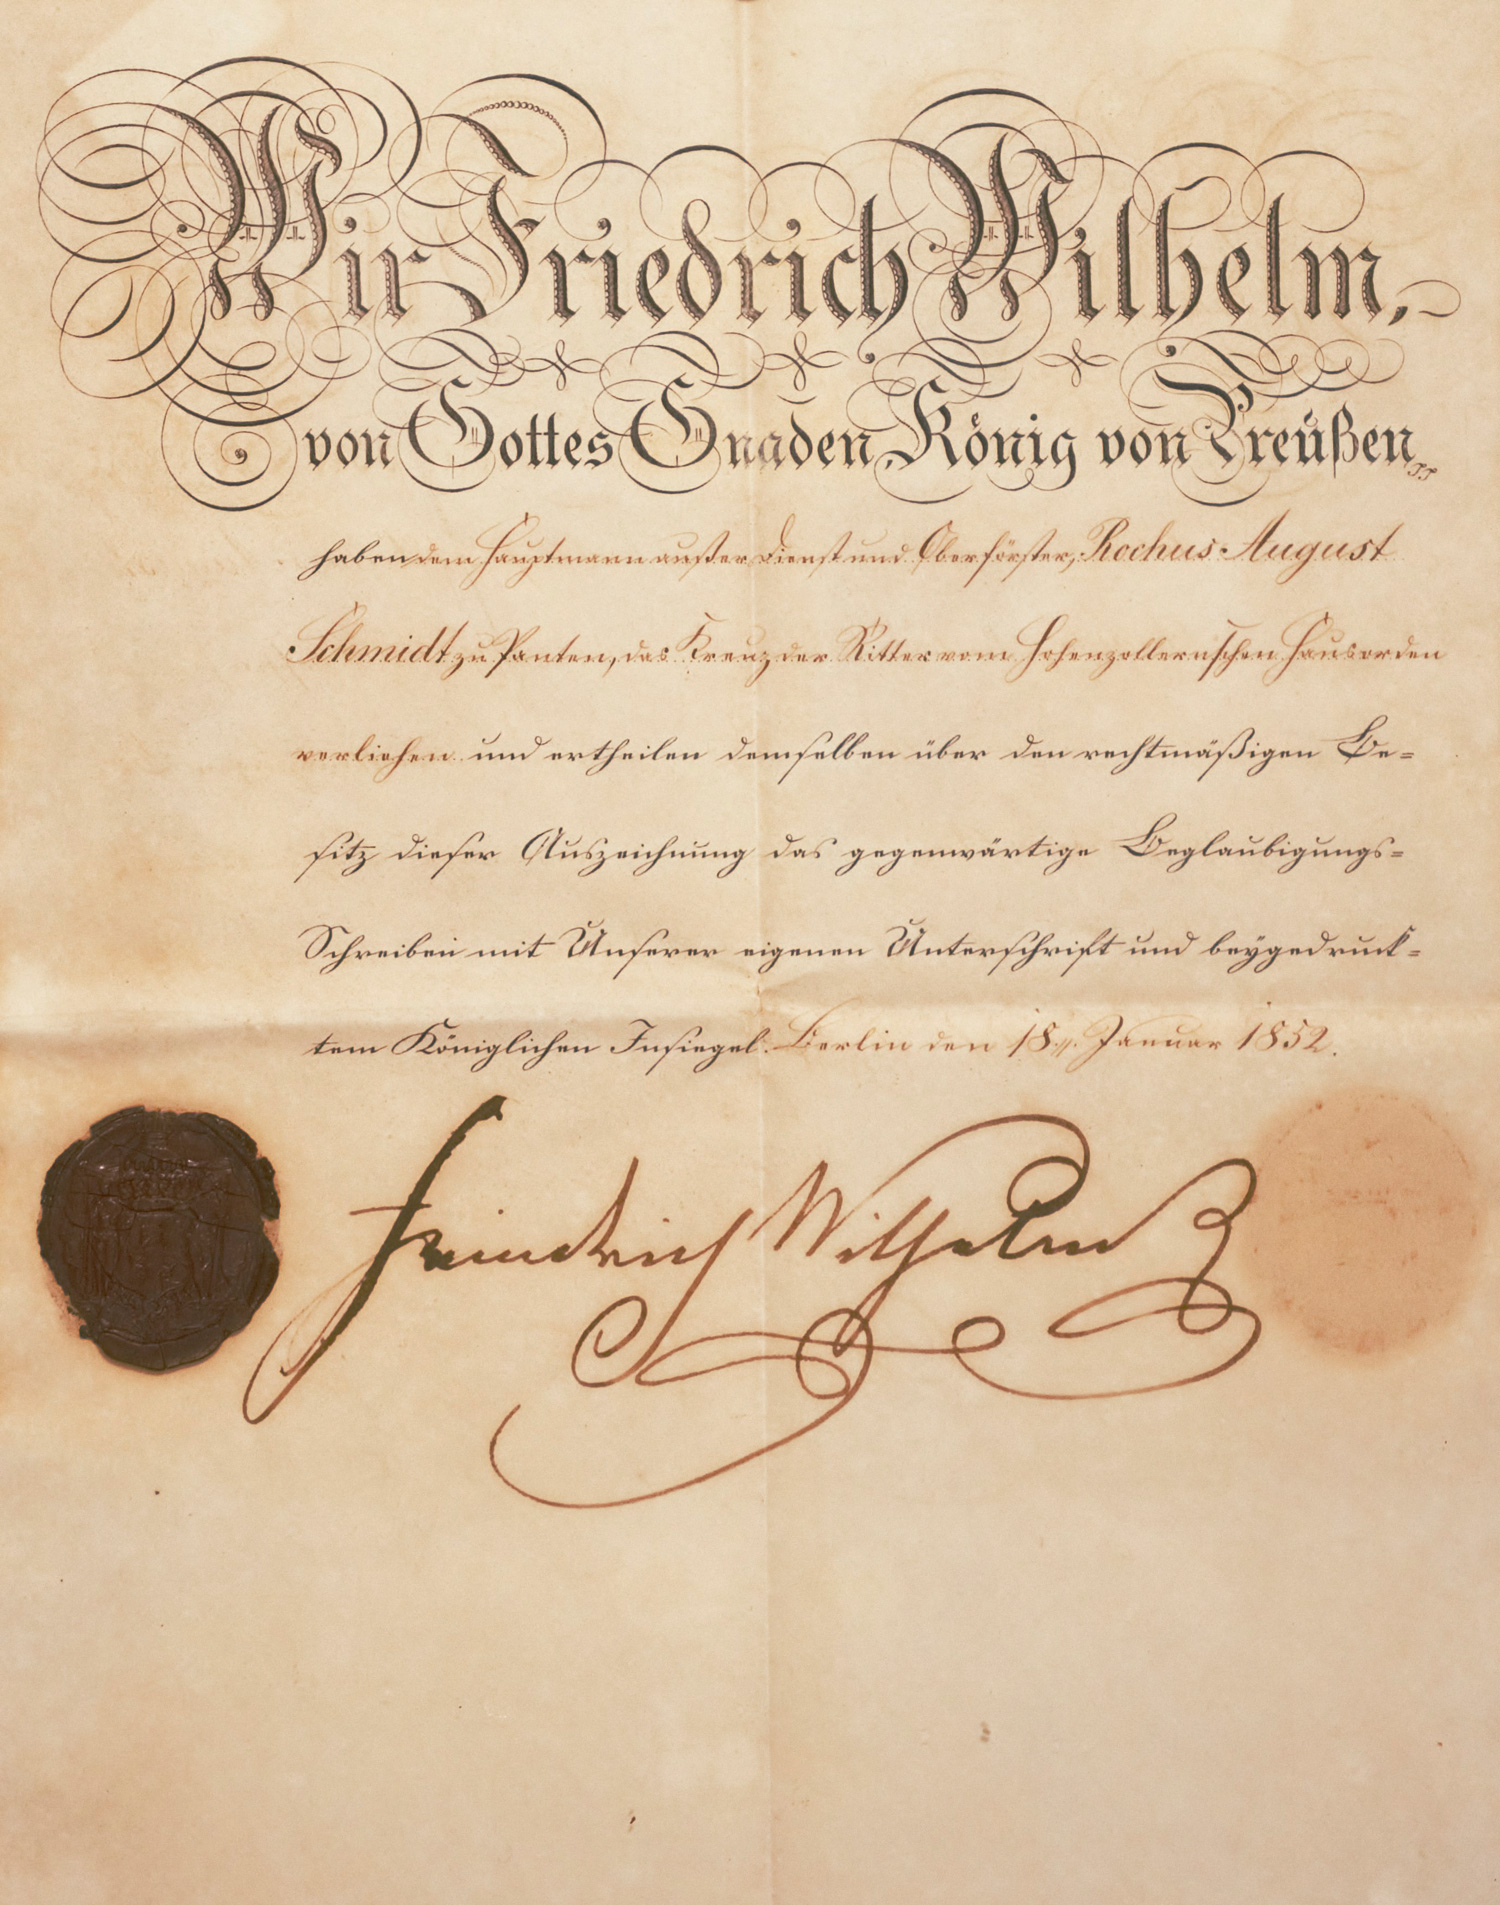 Wir Friedrich Wilhelm,
von Gottes Gnaden König von Preußen
haben dem Hauptmann außer Dienst und Oberförster, Rochus August
Schmidt zu Panten, das Kreuz der Ritter vom Hohenzollernschen Hausorden
verliehen und ertheilen demselben über den rechtmäßigen Be=
sitz dieser Auszeichnung das gegenwärtige Beglaubigungs=
Schreiben mit Unserer eigenen Unterschrift und beygedruck=
tem Königlichen Insiegel. Berlin den 18. Januar 1852.
Friedrich Wilhelm